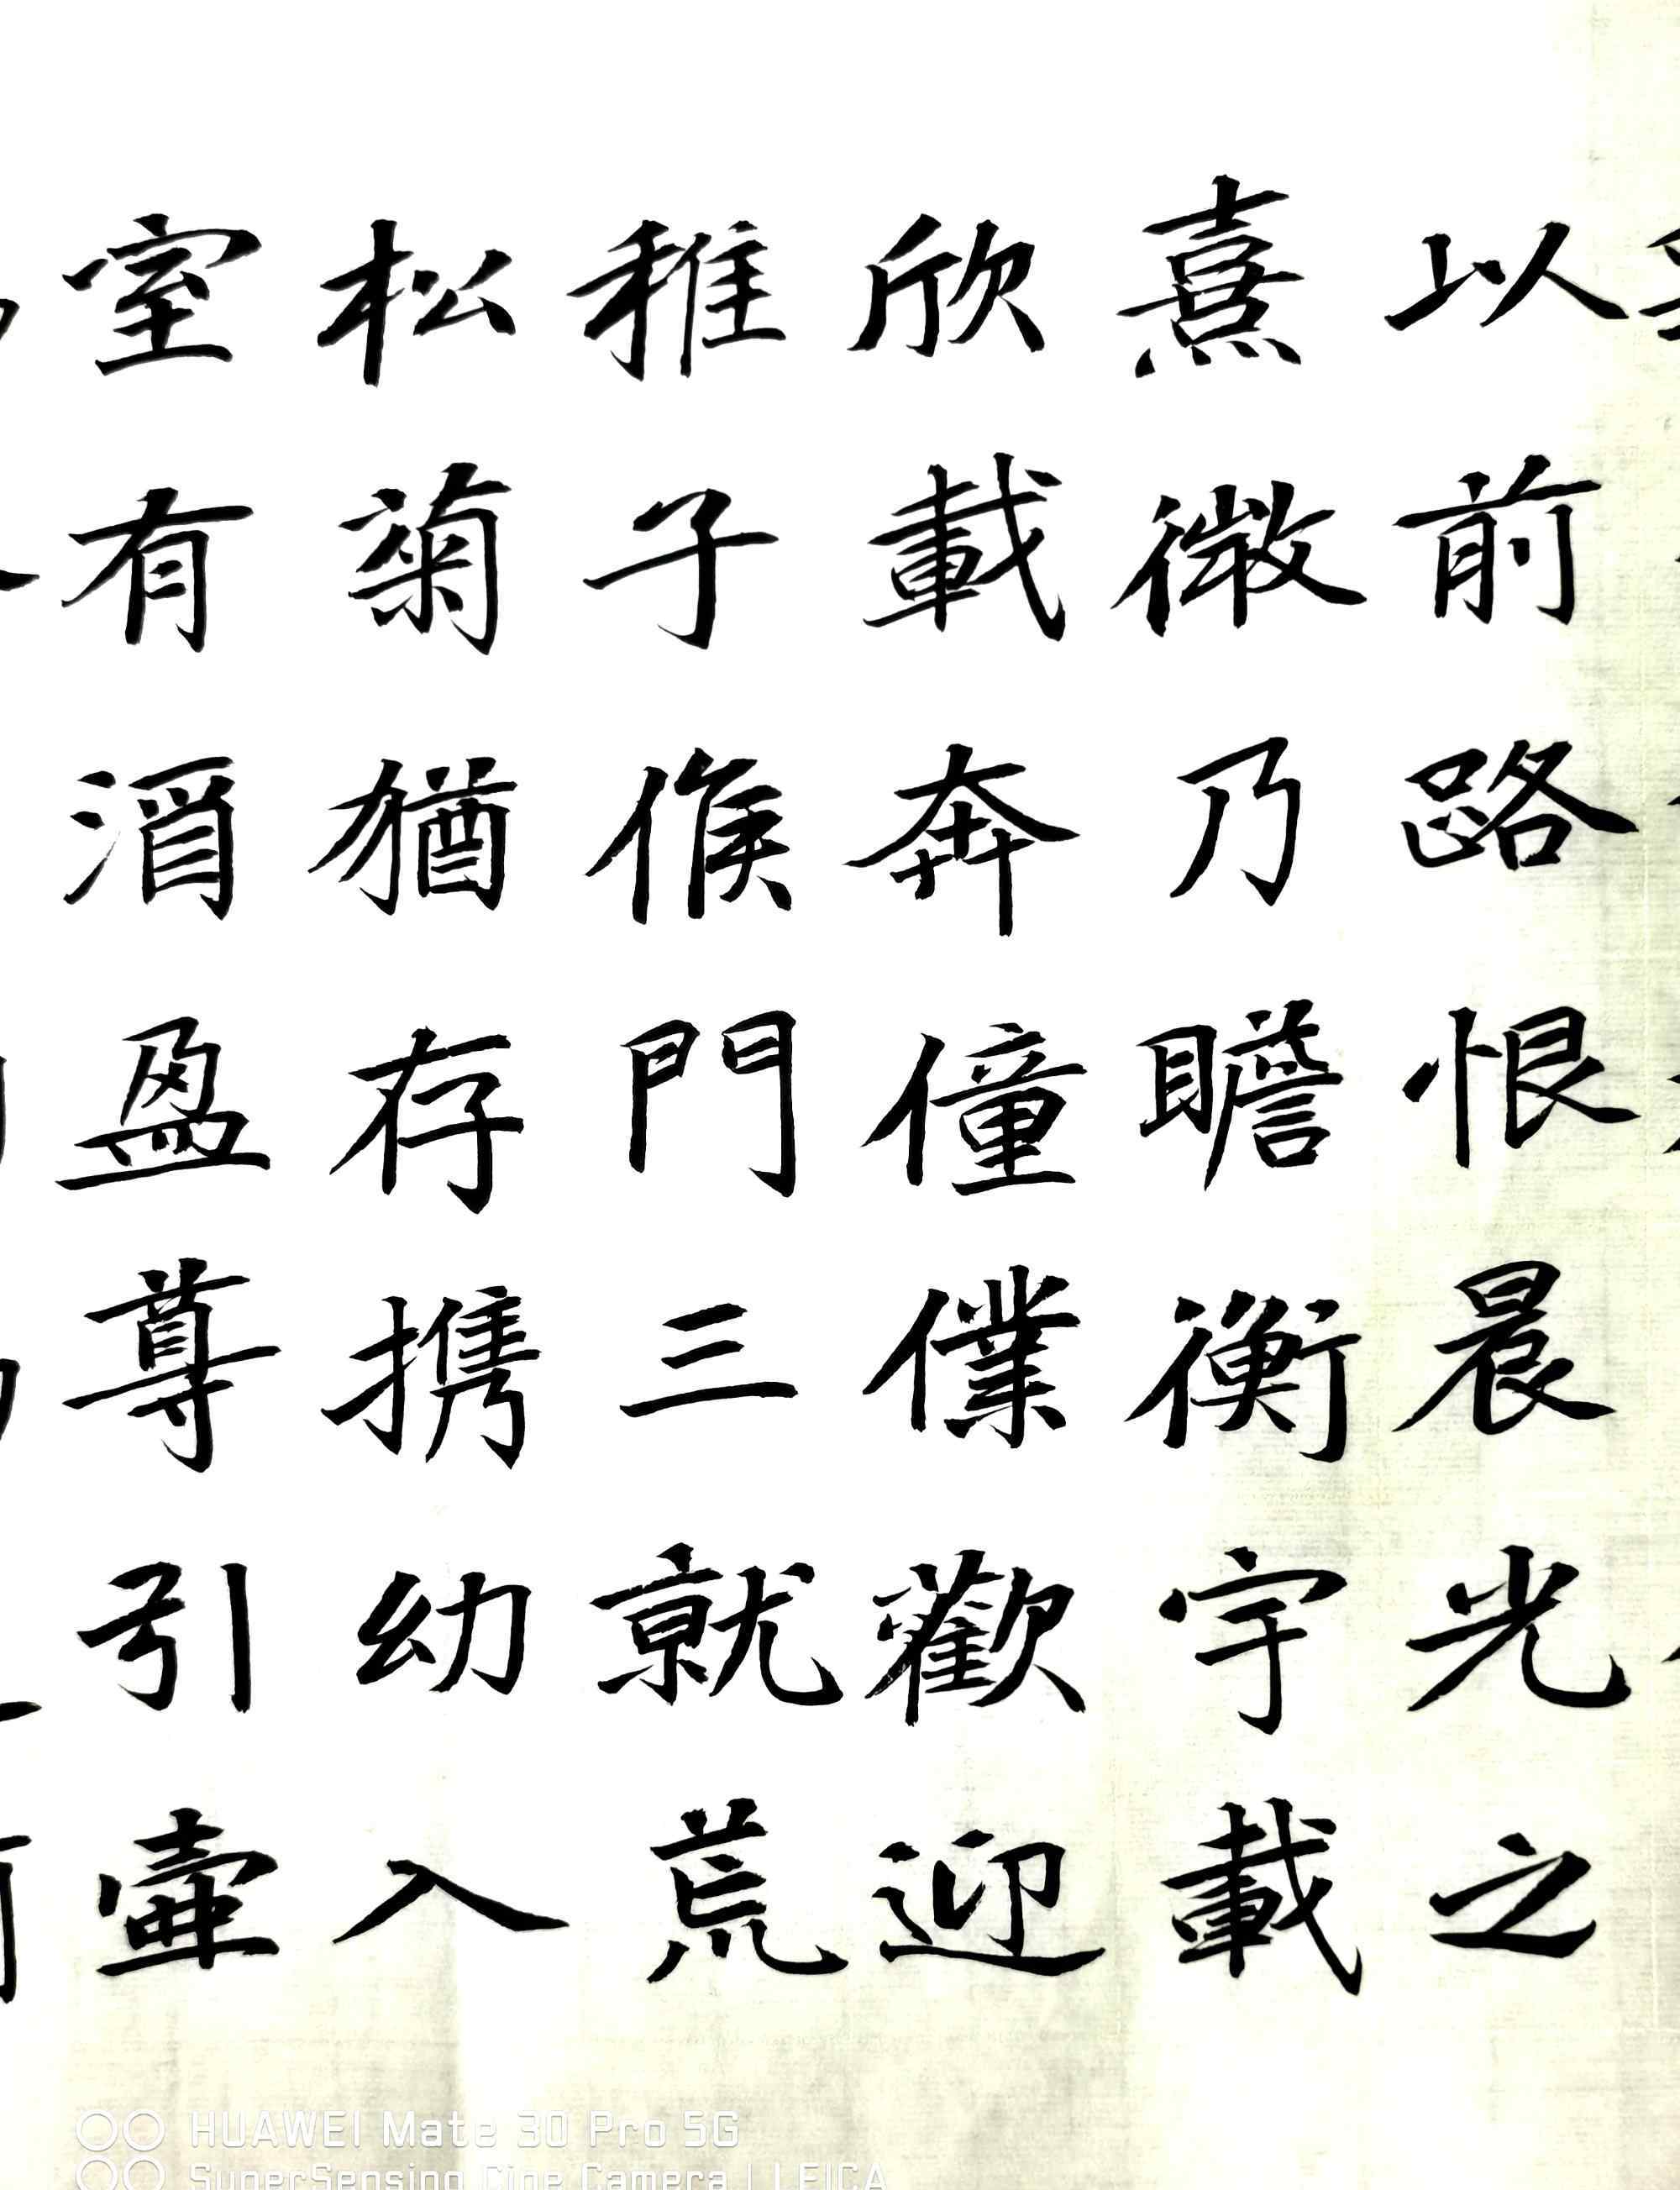 以前路恨晨光之
熹微乃瞻衡宇載
欣載奔僮僕歡迎
稚子候門三就荒
松菊猶存携幼入
室有酒盈尊引壷
HUAWEI Mate 30 Pro 5G
SuperSensing Cine Camera | LEICA